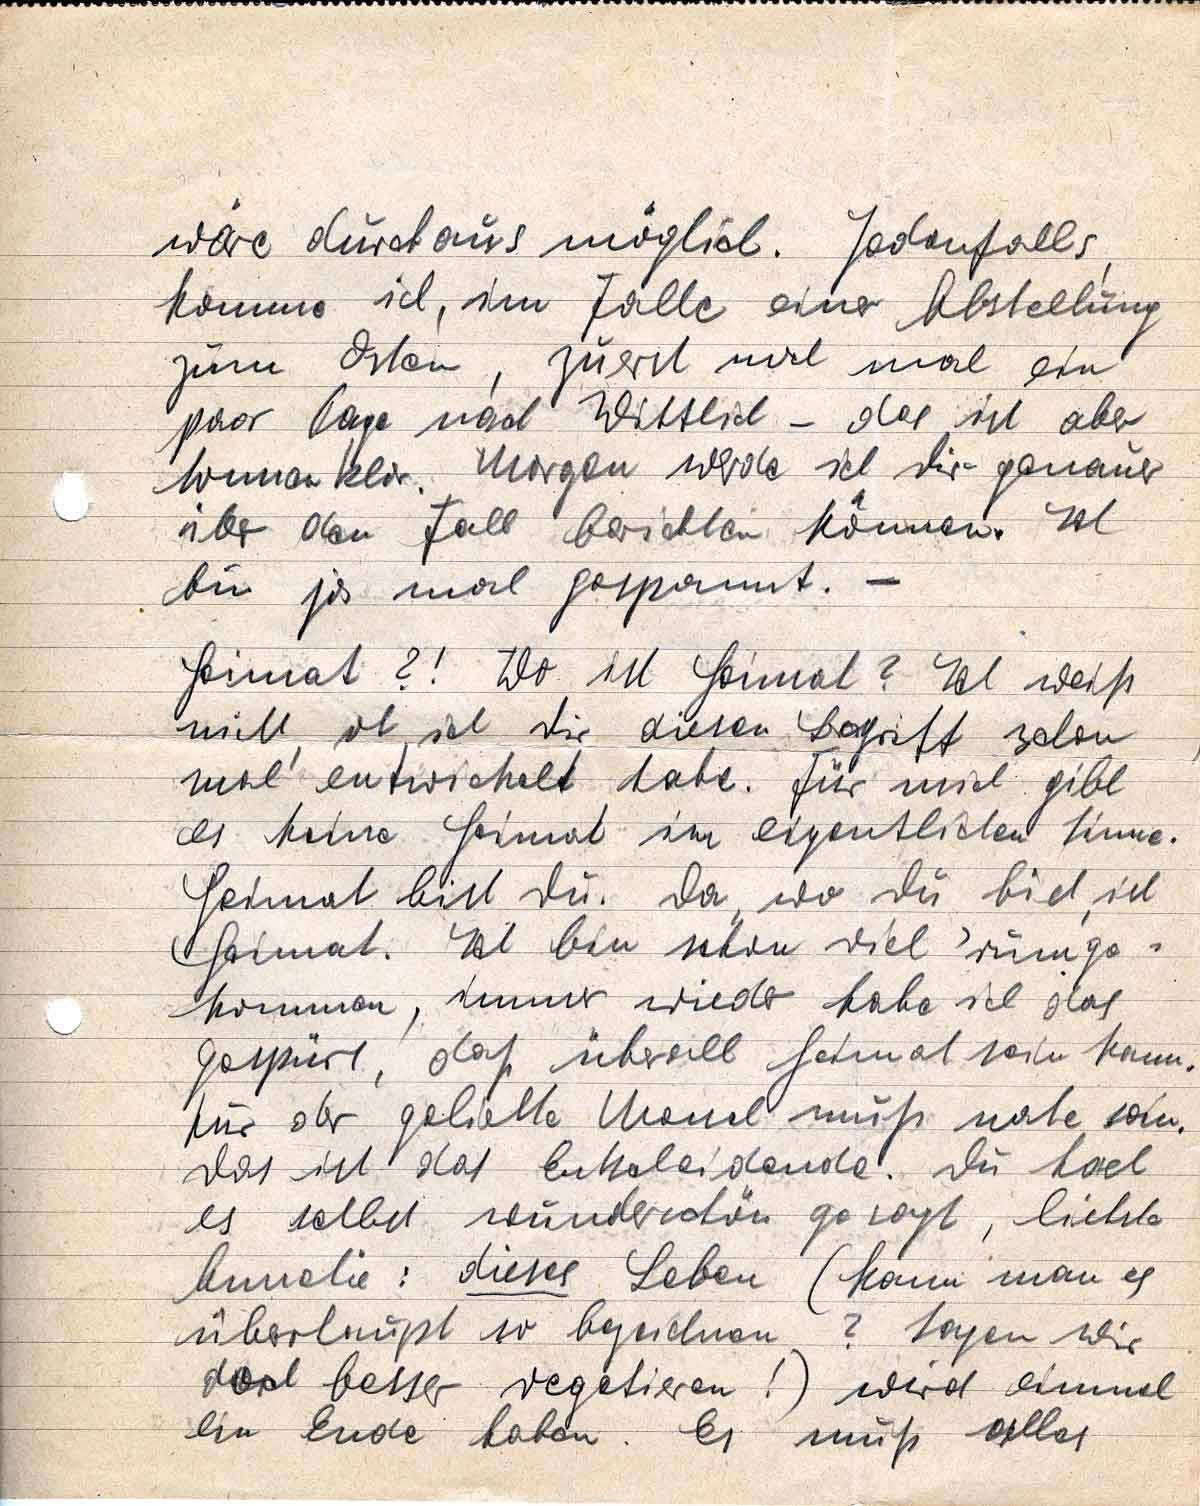 wäre durchaus möglich. Jedenfalls
komme ich, im Falle einer Abstellung
zum Osten, zuerst noch mal ein
paar Tage nach Wittlich – das ist aber
sonnenklar. Morgen werde ich dir genauer
über den Fall berichten können. Ich
bin ja mal gespannt. –
Heimat?! Wo ist Heimat? Ich weiß
nicht, ob ich dir diesen Begriff schon
mal entwickelt habe. Für mich gibt
es keine Heimat im eigentlichen Sinne.
Heimat bist Du. Da, wo Du bist, ist
Heimat. Ich bin schon viel 'rumge-
kommen, immer wieder habe ich das
gespürt, daß überall Heimat sein kann.
Nur der geliebte Mensch muß nahe sein.
Das ist das Entscheidende. Du hast
es selbst wunderschön gesagt, liebste
Annelie: dieses Leben (kann man es
überhaupt so bezeichnen? Sagen wir
doch besser vegetieren!) wird einmal
ein Ende haben. Es muß alles